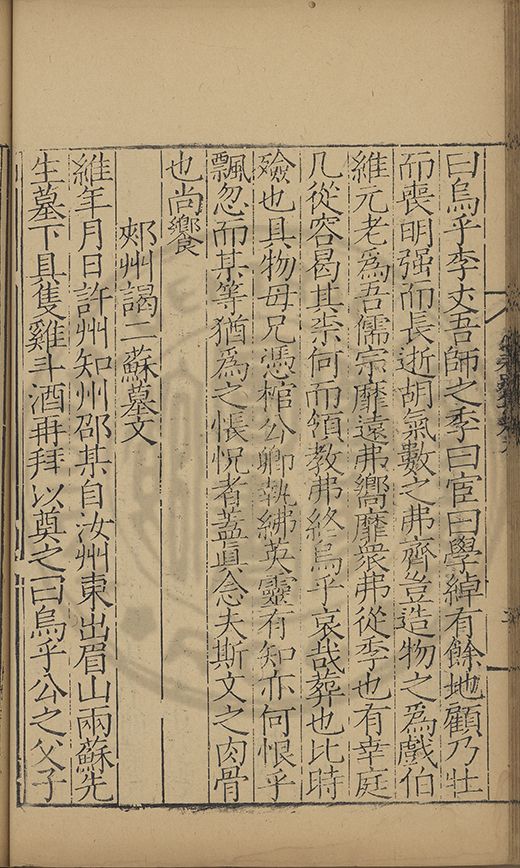 曰烏乎李丈吾師之季曰宦曰學綽有餘地顧乃壯
而喪明强而長逝胡氣數之弗齊豈造物之為戲伯
維元老為吾儒宗靡遠弗嚮靡衆弗從季也有幸庭
几從容曷其柰何而領教弗終烏乎哀哉葬也比時
殮也具物毋兄憑棺公卿執紼英靈有知亦何恨乎
飄忽而某等猶為之悵怳者蓋眞念夫斯文之肉骨
也尚饗
郟州謁二蘇墓文
維年月日許州知州邵某自汝州東出眉山兩蘇先
生墓下具隻雞斗酒再拜以奠之曰烏乎公之父子